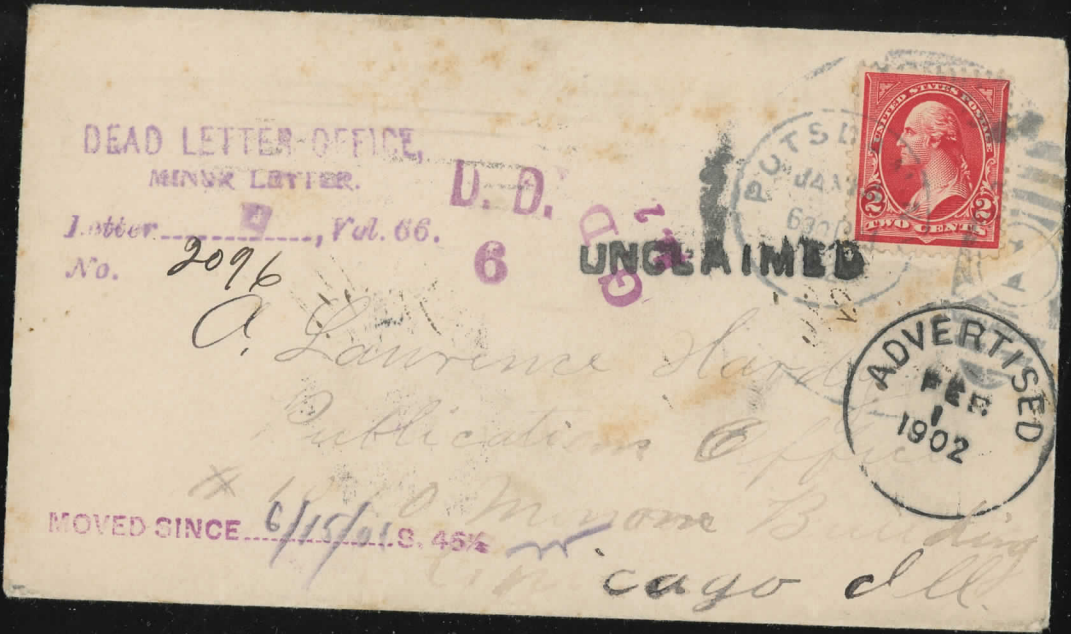 DEAD LETTER OFFICE,
MINOR LETTER.
Letter, Vol. 66.
No. 2096
D. D.
6
UNCLAIMED
POTSD
JAN
UNITED STATES POSTAGE
2 2
TWO CENTS
ADVERTISED
FEB
1
1902
A. Lawrence Hardy
Publication Office
Building
cago Ill.
MOVED SINCE 6/15/01 S. 46½